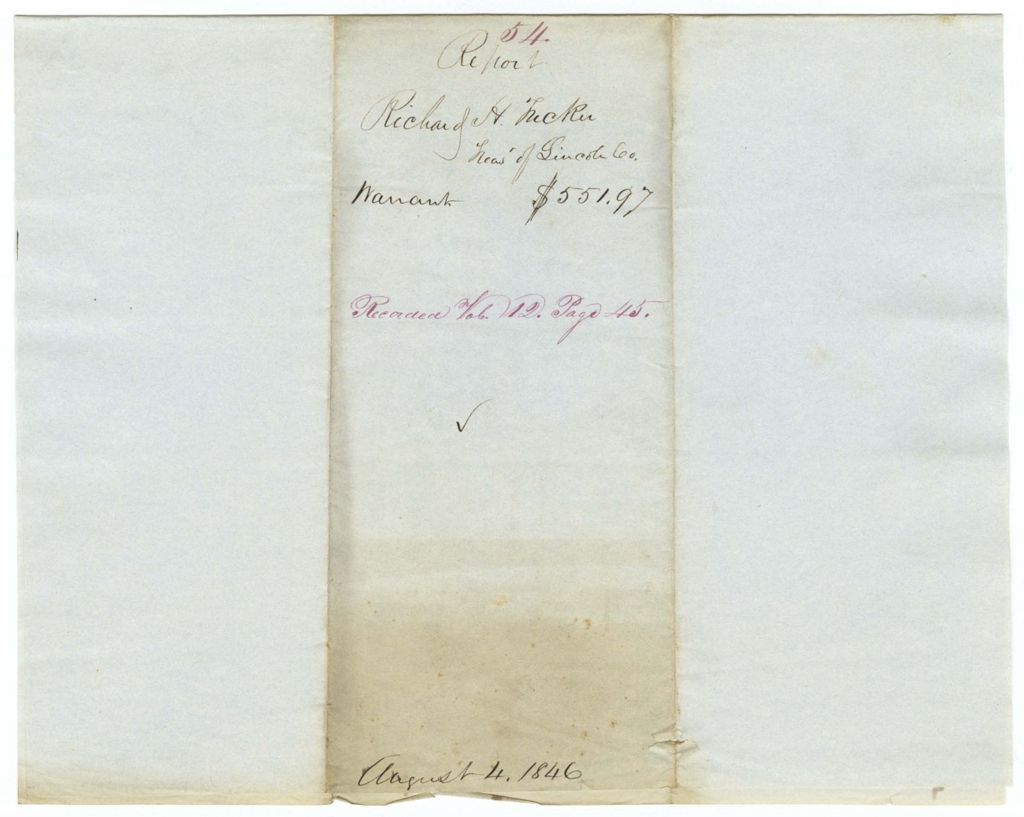 54.
Report
Richard H. Tucker
Treasr of Lincoln Co.
Warrant $551.97
Recorded Vol. 12. Page 45.
August 4. 1846